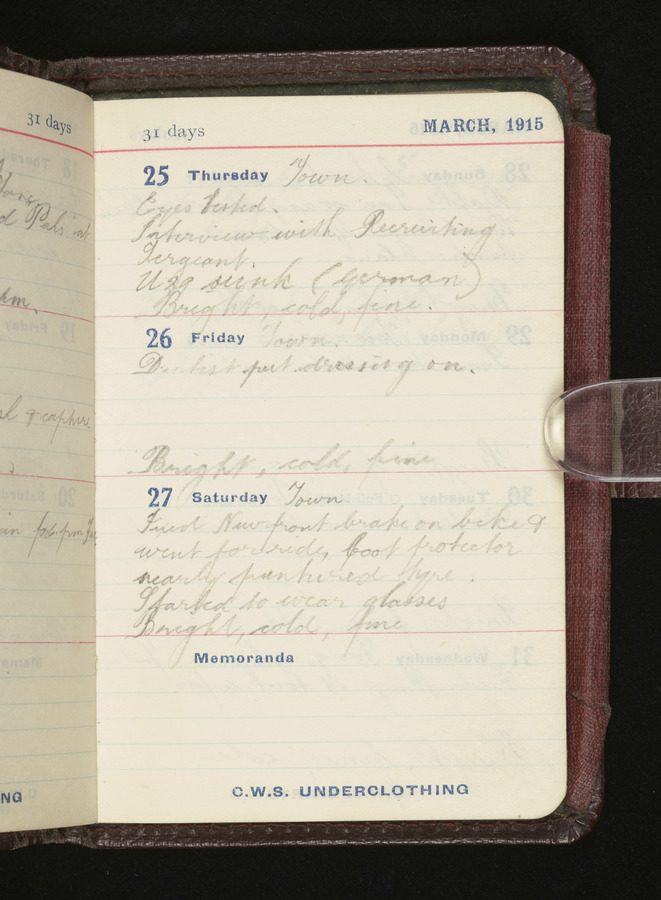 31 days
d Pals at
NG
31 days MARCH, 1915
25 Thursday Town.
Eyes tested.
Interview with Recruiting
Sergeant.
U29 sunk (German)
Bright, cold, fine.
26 Friday Town.
Dentist put dressing on.
Bright, cold, fine
27 Saturday Town
Fixed New front brake on bike &
went for ride, boot protector
nearly puntured tyre.
Started to wear glasses
Bright, cold, fine
Memoranda
C.W.S. UNDERCLOTHING